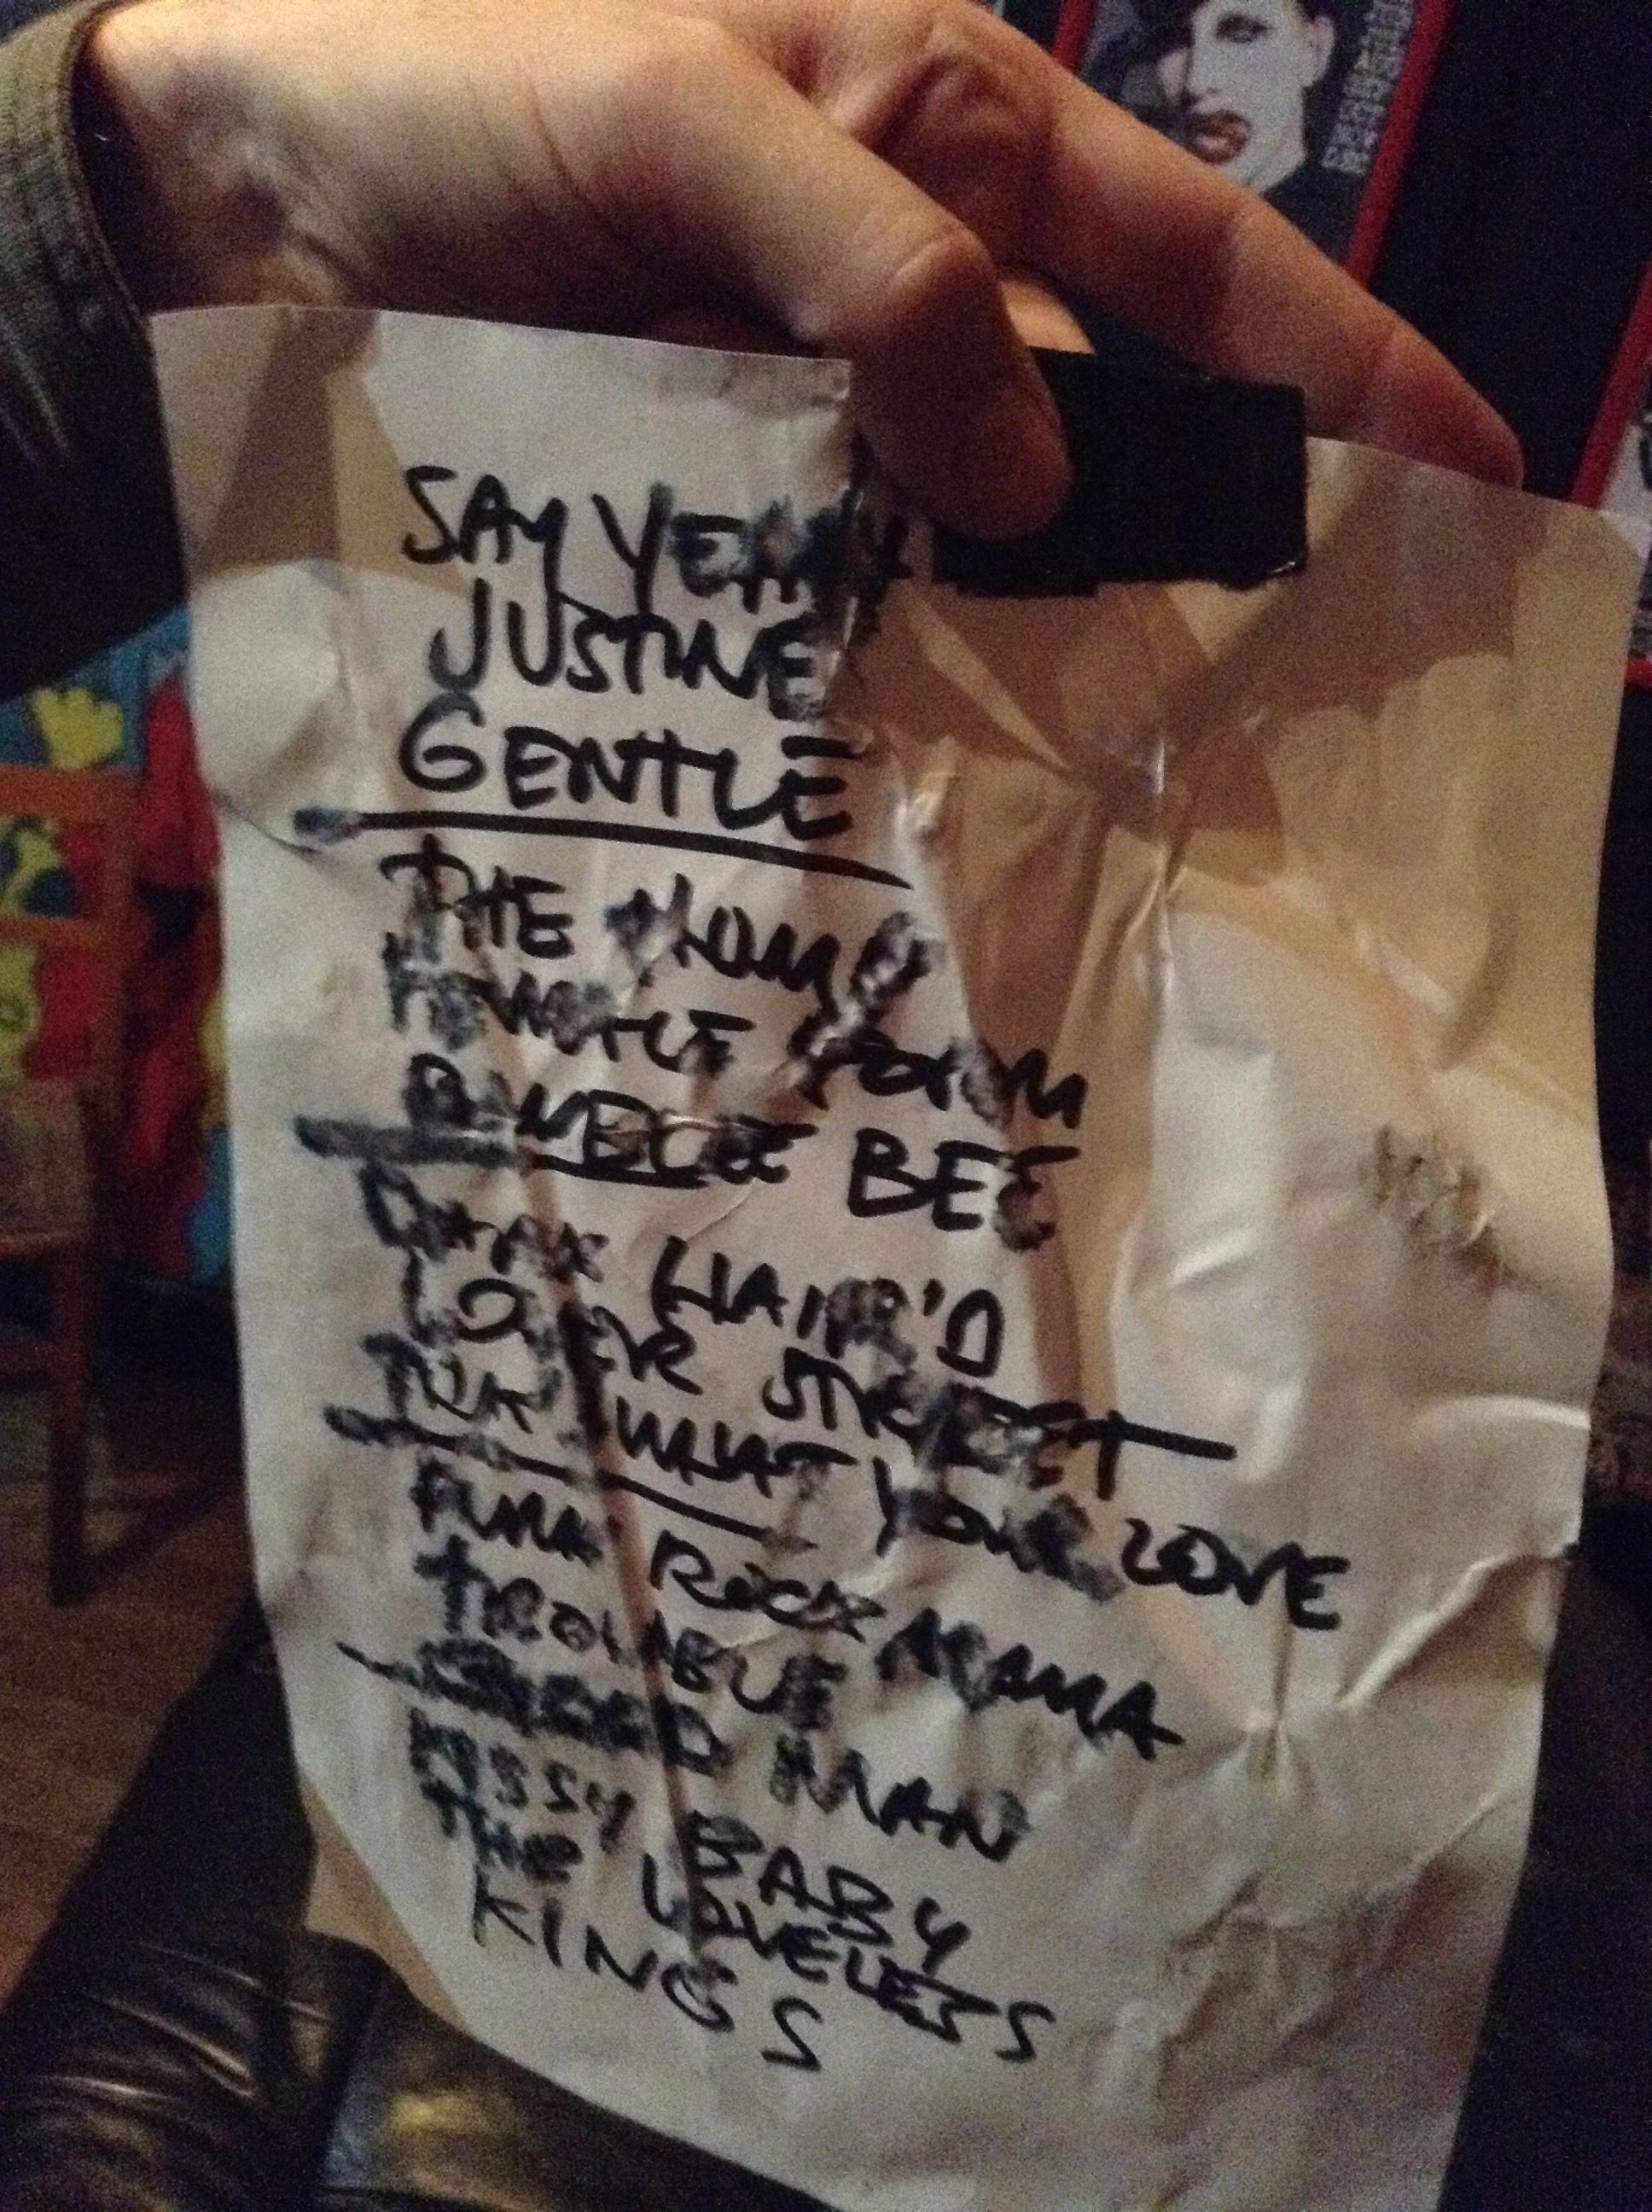 SAY YEAH
JUSTINE
GENTLE
THE
BEE
DARK HAIR'D
LOVER STREET
WHAT YOUR LOVE
PUNK ROCK MAMA
TROUBLE
MAN
KISSY BABY
THE LOVELESS
KINGS